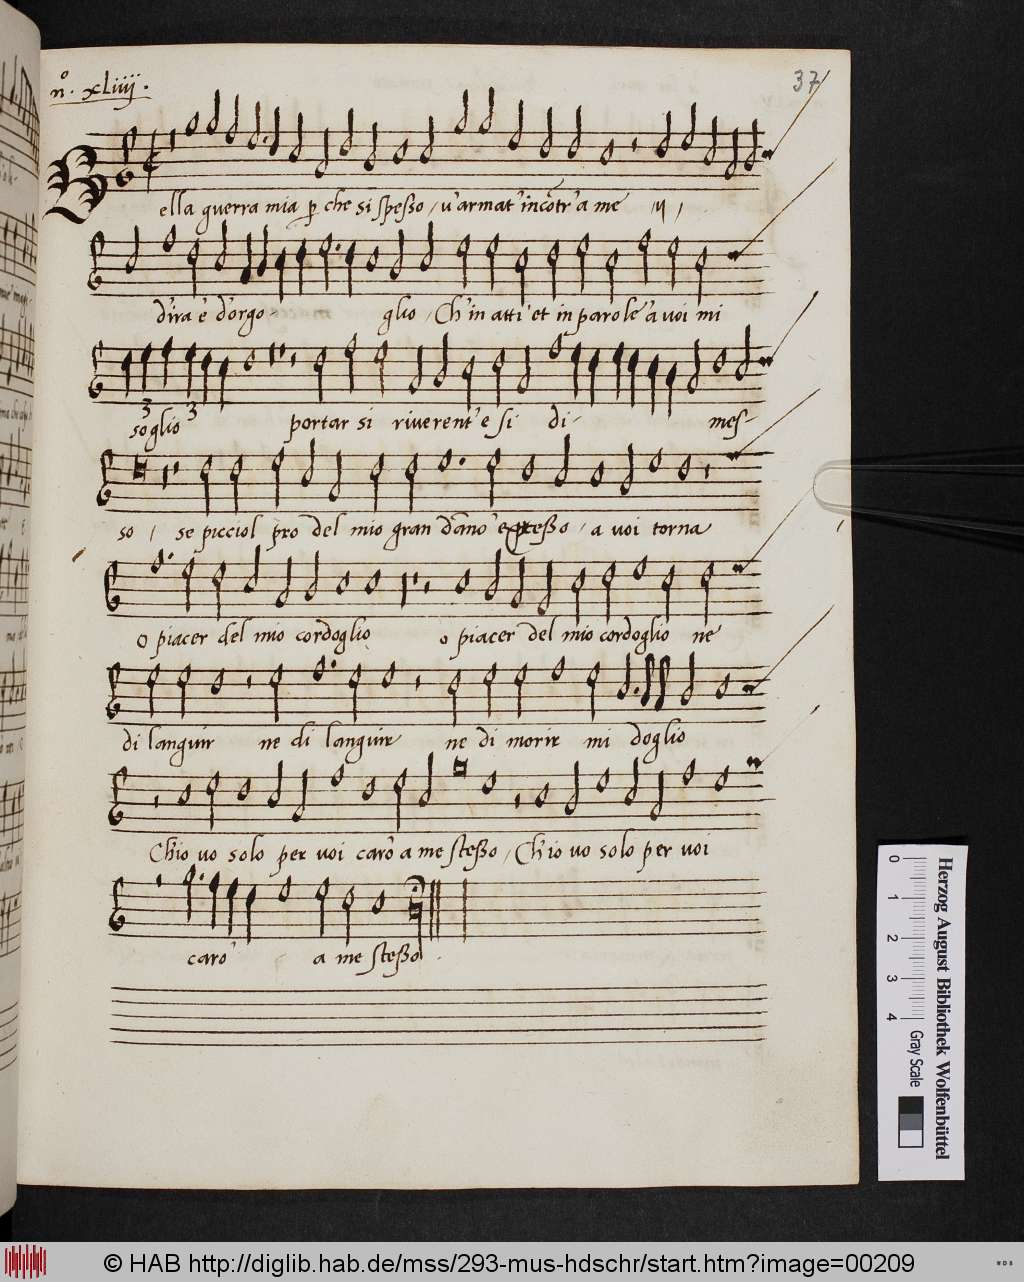 nº. xLiiij.
37
Bella guerra mia p che si speßo / v'armat' incõtr' a me / ij /
d'ira è d'orgo- glio / Ch'in atti et in parole a voi mi
3 3
soglio portar si riverent' e si di- mes-
so / se picciol pro del mio gran dãno' eßo / a voi torna
o piacer del mio cordoglio o piacer del mio cordoglio ne
di languir ne di languir ne di morir mi doglio
Ch'io vo solo per voi caro a me steßo / Ch'io vo solo per voi
caro' a me steßo.
0 1 2 3 4
Gray Scale
Herzog August Bibliothek Wolfenbüttel
© HAB http://diglib.hab.de/mss/293-mus-hdschr/start.htm?image=00209